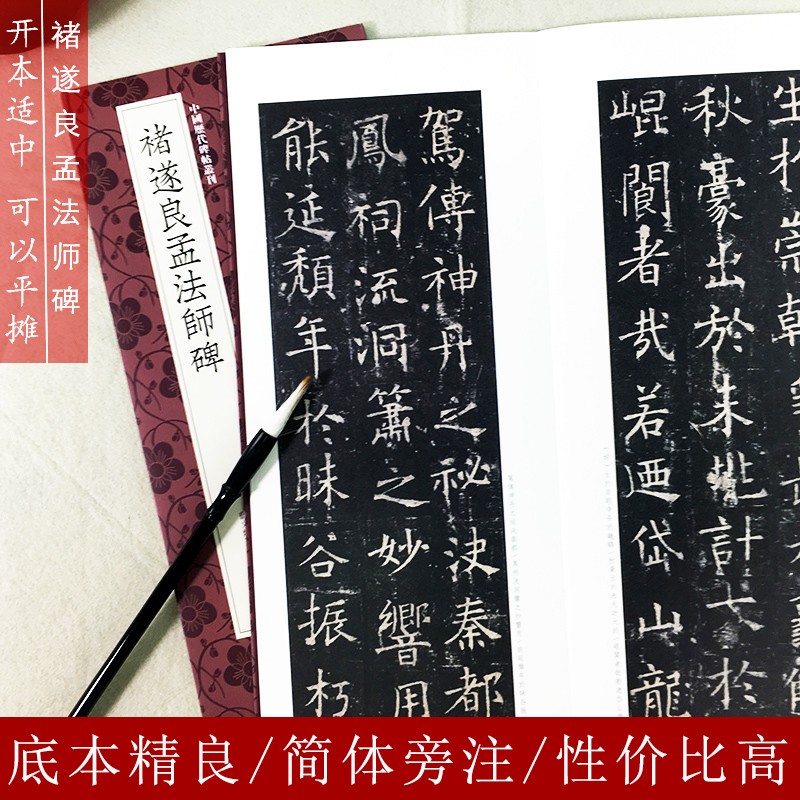 褚遂良孟法师碑
开本适中 可以平摊
中國歷代碑帖叢刊
褚遂良孟法師碑
生於崇朝
秋豪出於未 計 於
崐閬者哉若迺岱山龍
駕傳神丹之祕決秦都
鳳祠流洞簫之妙響用
能延頹年於昧谷振朽
底本精良/简体旁注/性价比高